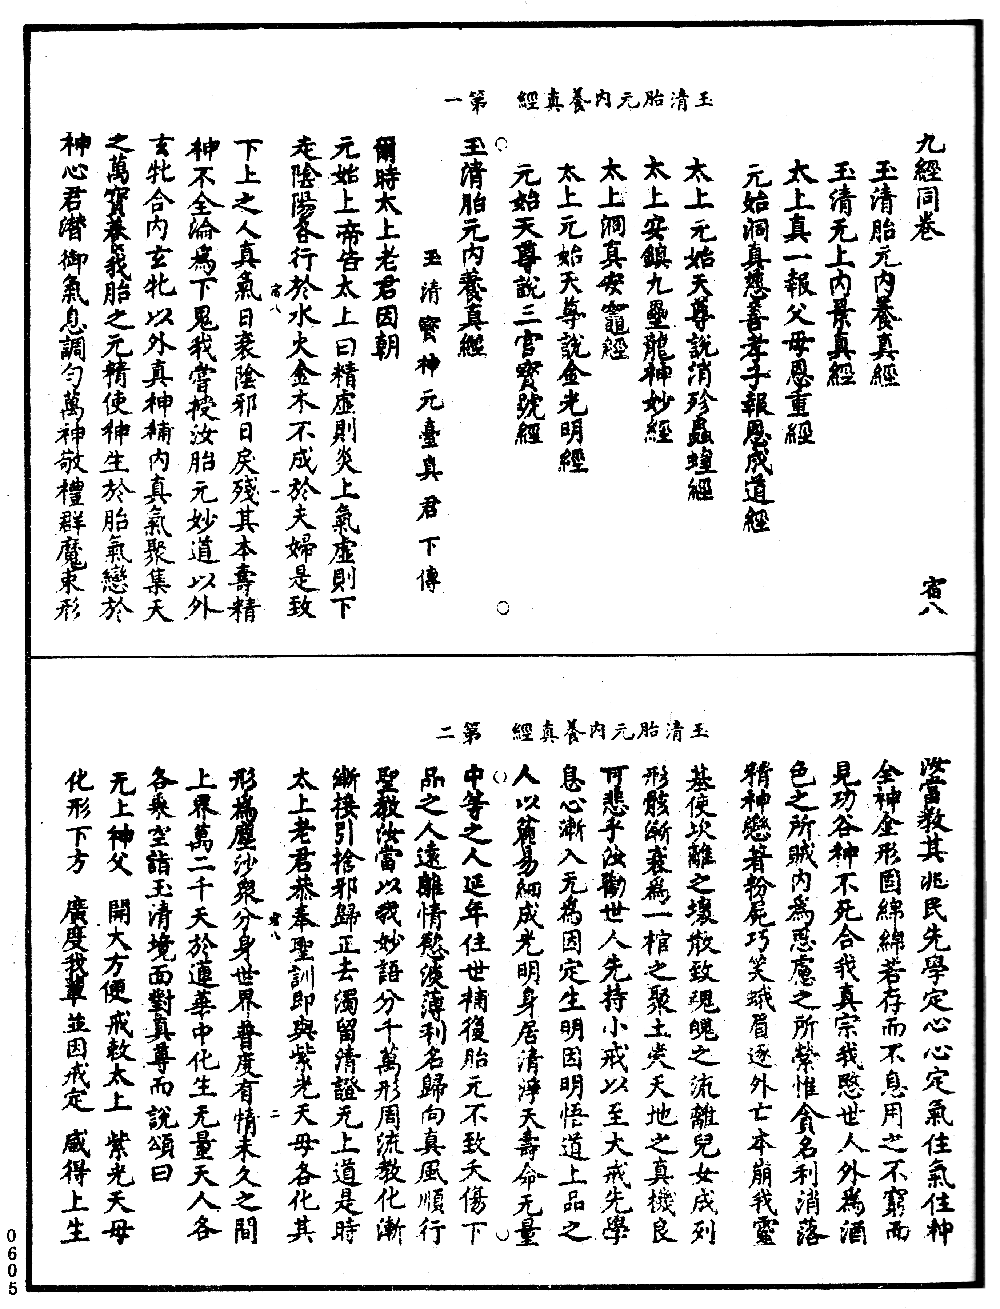 九經同卷　宿八
玉清胎元内養真經
玉清无上内景真經
太上真一報父母恩重經
元始洞真慈善孝子報恩成道經
太上元始天尊說消殄蟲蝗經
太上安鎮九壘龍神妙經
太上洞真安竈經
太上元始天尊說金光明經
元始天尊說三官寶號經
玉清胎元内養真經　第一
玉清胎元内養真經
玉清寶神元臺真君下傳
爾時太上老君因朝
元始上帝告太上曰精虚則炎上氣虚則下
走陰陽各行於水火金木不成於夫婦是致
宿八　一
下上之人真氣日衰陰邪日戾殘其本壽精
神不全淪爲下鬼我當授汝胎元妙道以外
玄牝合内玄牝以外真神補内真氣聚集天
之萬寶養我胎之元精使神生於胎氣戀於
神心君潜御氣息調勻萬神敬禮群魔束形
玉清胎元内養真經　第二
汝當教其兆民先學定心心定氣住氣住神
全神全形固綿綿若存而不息用之不窮而
見功谷神不死合我真宗我愍世人外爲酒
色之所賊内爲思慮之所縈惟貪名利消落
精神戀著粉屍巧笑蛾眉逐外亡本崩我靈
基使坎離之壞散致魂魄之流離兒女成列
形骸漸衰爲一棺之聚土失天地之真機良
可悲乎汝勸世人先持小戒以至大戒先學
息心漸入无爲因定生明因明悟道上品之
人以舊易細成光明身居清淨天壽命无量
中等之人延年住世補復胎元不致夭傷下
品之人遠離情慾淡薄利名歸向真風順行
聖教汝當以我妙語分千萬形周流教化漸
漸接引捨邪歸正去濁留清證无上道是時
太上老君恭奉聖訓即與紫光天母各化其
宿八　二
形爲塵沙衆分身世界普度有情未久之間
上界萬二千天於蓮華中化生无量天人各
各乘空詣玉清境面對真尊而說頌曰
元上神父　開大方便　戒敕太上　紫光天母
化形下方　廣度我輩　並因戒定　感得上生
0605